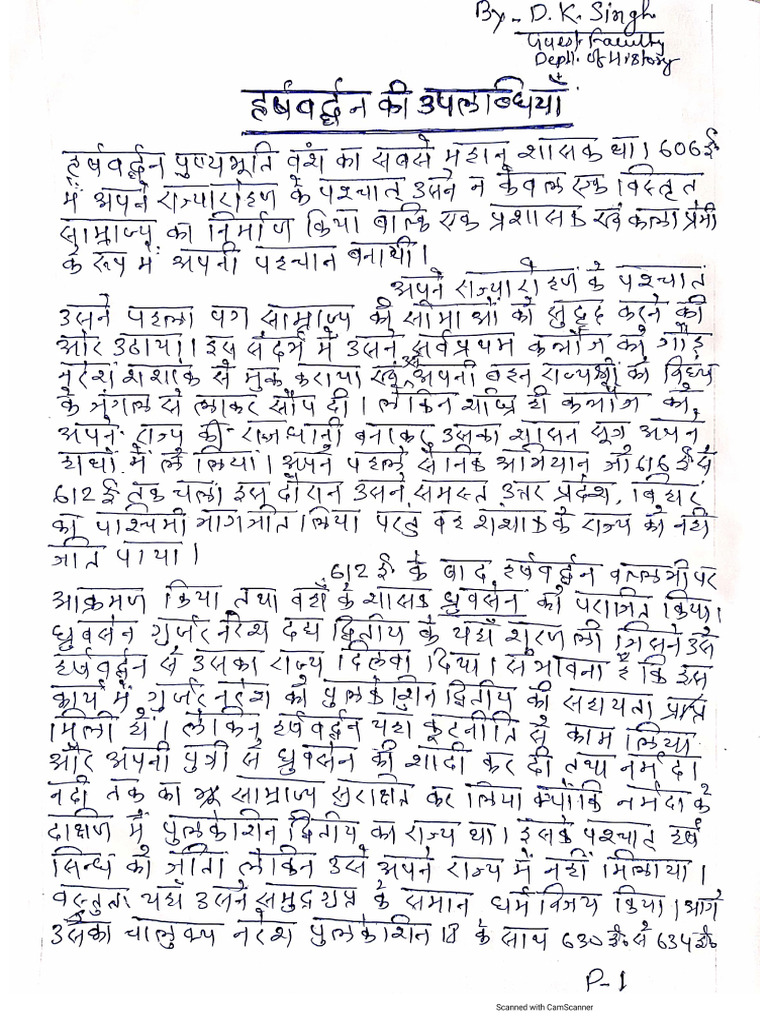 By - D. K. Singh
Guest Faculty
Deptt. of History
हर्षवर्द्धन की उपलब्धियाँ
हर्षवर्द्धन पुष्यभूति वंश का सबसे महान् शासक था। 606ई
में अपने राज्यारोहण के पश्चात् उसने न केवल एक विस्तृत
साम्राज्य का निर्माण किया बल्कि एक प्रशासक एवं कला प्रेमी
के रूप में अपनी पहचान बनायी।
अपने राज्यारोहण के पश्चात
उसने पहला पग साम्राज्य की सीमाओं को सुदृढ़ करने की
ओर उठाया। इस संदर्भ में उसने सर्वप्रथम कन्नौज को गौड़
नरेश शशांक से मुक्त कराया एवं अपनी बहन राज्यश्री को विंध्य
के जंगल से लाकर सौंप दी। लेकिन शीघ्र ही कन्नौज को
अपने राज्य की राजधानी बनाकर उसका शासन सूत्र अपने
हाथों में ले लिया। अपने पहले सैनिक अभियान जो 616 ई से
612 ई तक चला। इस दौरान उसने समस्त उत्तर प्रदेश, बिहार
का पश्चिमी भाग जीत लिया परंतु वह शशांक के राज्य को नहीं
जीत पाया।
612 ई के बाद हर्षवर्द्धन वल्लभी पर
आक्रमण किया तथा वहाँ के शासक ध्रुवसेन को पराजित किया।
ध्रुवसेन गुर्जर नरेश दद्द द्वितीय के यहाँ शरण ली जिसने उसे
हर्षवर्द्धन से उसका राज्य दिलवा दिया। संभावना है कि इस
कार्य में गुर्जर नरेश को पुलकेशिन द्वितीय की सहायता प्राप्त
मिली थी। लेकिन हर्षवर्द्धन यहाँ कूटनीति से काम लिया
और अपनी पुत्री से ध्रुवसेन की शादी कर दी तथा नर्मदा
नदी तक का साम्राज्य सुरक्षित कर लिया क्योंकि नर्मदा के
दक्षिण में पुलकेशिन द्वितीय का राज्य था। इसके पश्चात् हर्ष
सिन्ध को जीता लेकिन उसे अपने राज्य में नहीं मिलाया।
वस्तुतः यहाँ उसने समुद्रगुप्त के समान धर्म विजय किया। आगे
उसका चालुक्य नरेश पुलकेशिन II के साथ 630 ई० से 634 ई०
P-1
Scanned with CamScanner